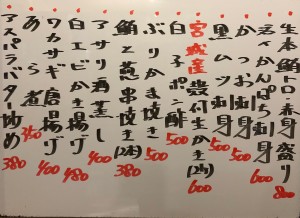 生本鮪トロ赤身盛り 800
活〆かんぱち刺身 600
かつお刺身 500
黒ムツ刺身 500
宮城産 殻付生かき(2ヶ) 600
白子ポン酢 500
ぶりかま焼き 500
鮪と葱串焼き(2本) 380
アサリ酒蒸し 400
白エビかき揚げ 480
ワカサギ唐揚げ 400
あら煮 350
アスパラバター炒め 380